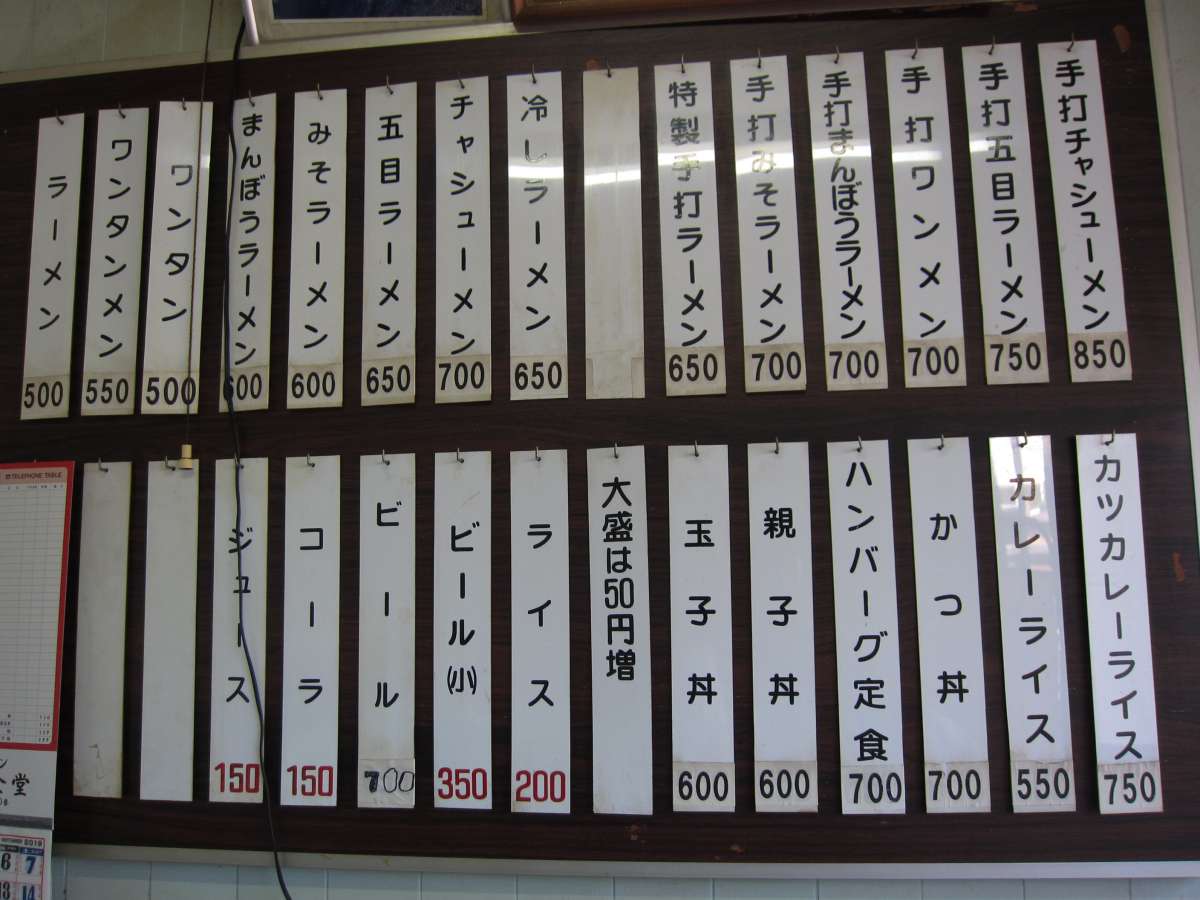 手打チャシューメン 850
手打五目ラーメン 750
手打ワンメン 700
手打まんぼうラーメン 700
手打みそラーメン 700
特製手打ラーメン 650
冷しラーメン 650
チャシューメン 700
五目ラーメン 650
みそラーメン 600
まんぼうラーメン 600
ワンタン 500
ワンタンメン 550
ラーメン 500
カツカレーライス 750
カレーライス 550
かつ丼 700
ハンバーグ定食 700
親子丼 600
玉子丼 600
大盛は50円増
ライス 200
ビール(小) 350
ビール 700
コーラ 150
ジュース 150
TELEPHONE TABLE
堂
2019
6 7
13 14